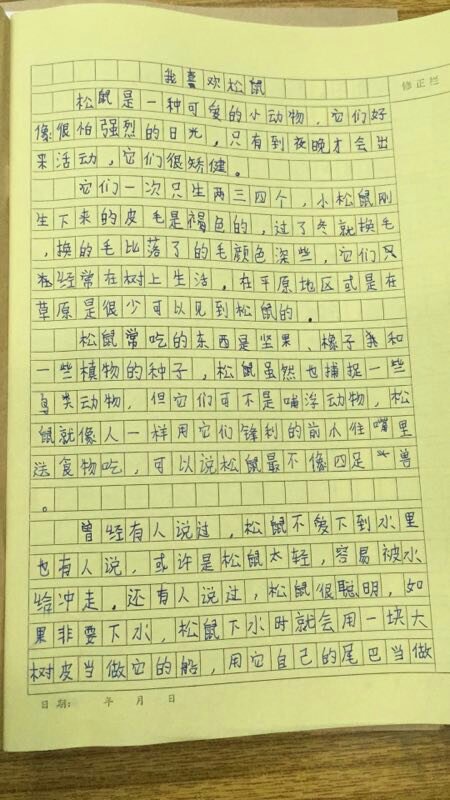 修正栏
我喜欢松鼠
松鼠是一种可爱的小动物，它们好
像很怕强烈的日光，只有到夜晚才会出
来活动，它们很矫健。
它们一次只生两三四个，小松鼠刚
生下来的皮毛是褐色的，过了冬就换毛
，换的毛比落了的毛颜色深些，它们只
经常在树上生活，在平原地区或是在
草原是很少可以见到松鼠的。
松鼠常吃的东西是坚果、橡子类和
一些植物的种子，松鼠虽然也捕捉一些
鸟类动物，但它们可不是哺浮动物，松
鼠就像人一样用它们锋利的前小往嘴里
送食物吃，可以说松鼠最不像四足兽
。
曾经有人说过，松鼠不爱下到水里
也有人说，或许是松鼠太轻，容易被水
给冲走。还有人说过，松鼠很聪明，如
果非要下水，松鼠下水时就会用一块大
树皮当做它的船，用它自己的尾巴当做
日期： 年 月 日